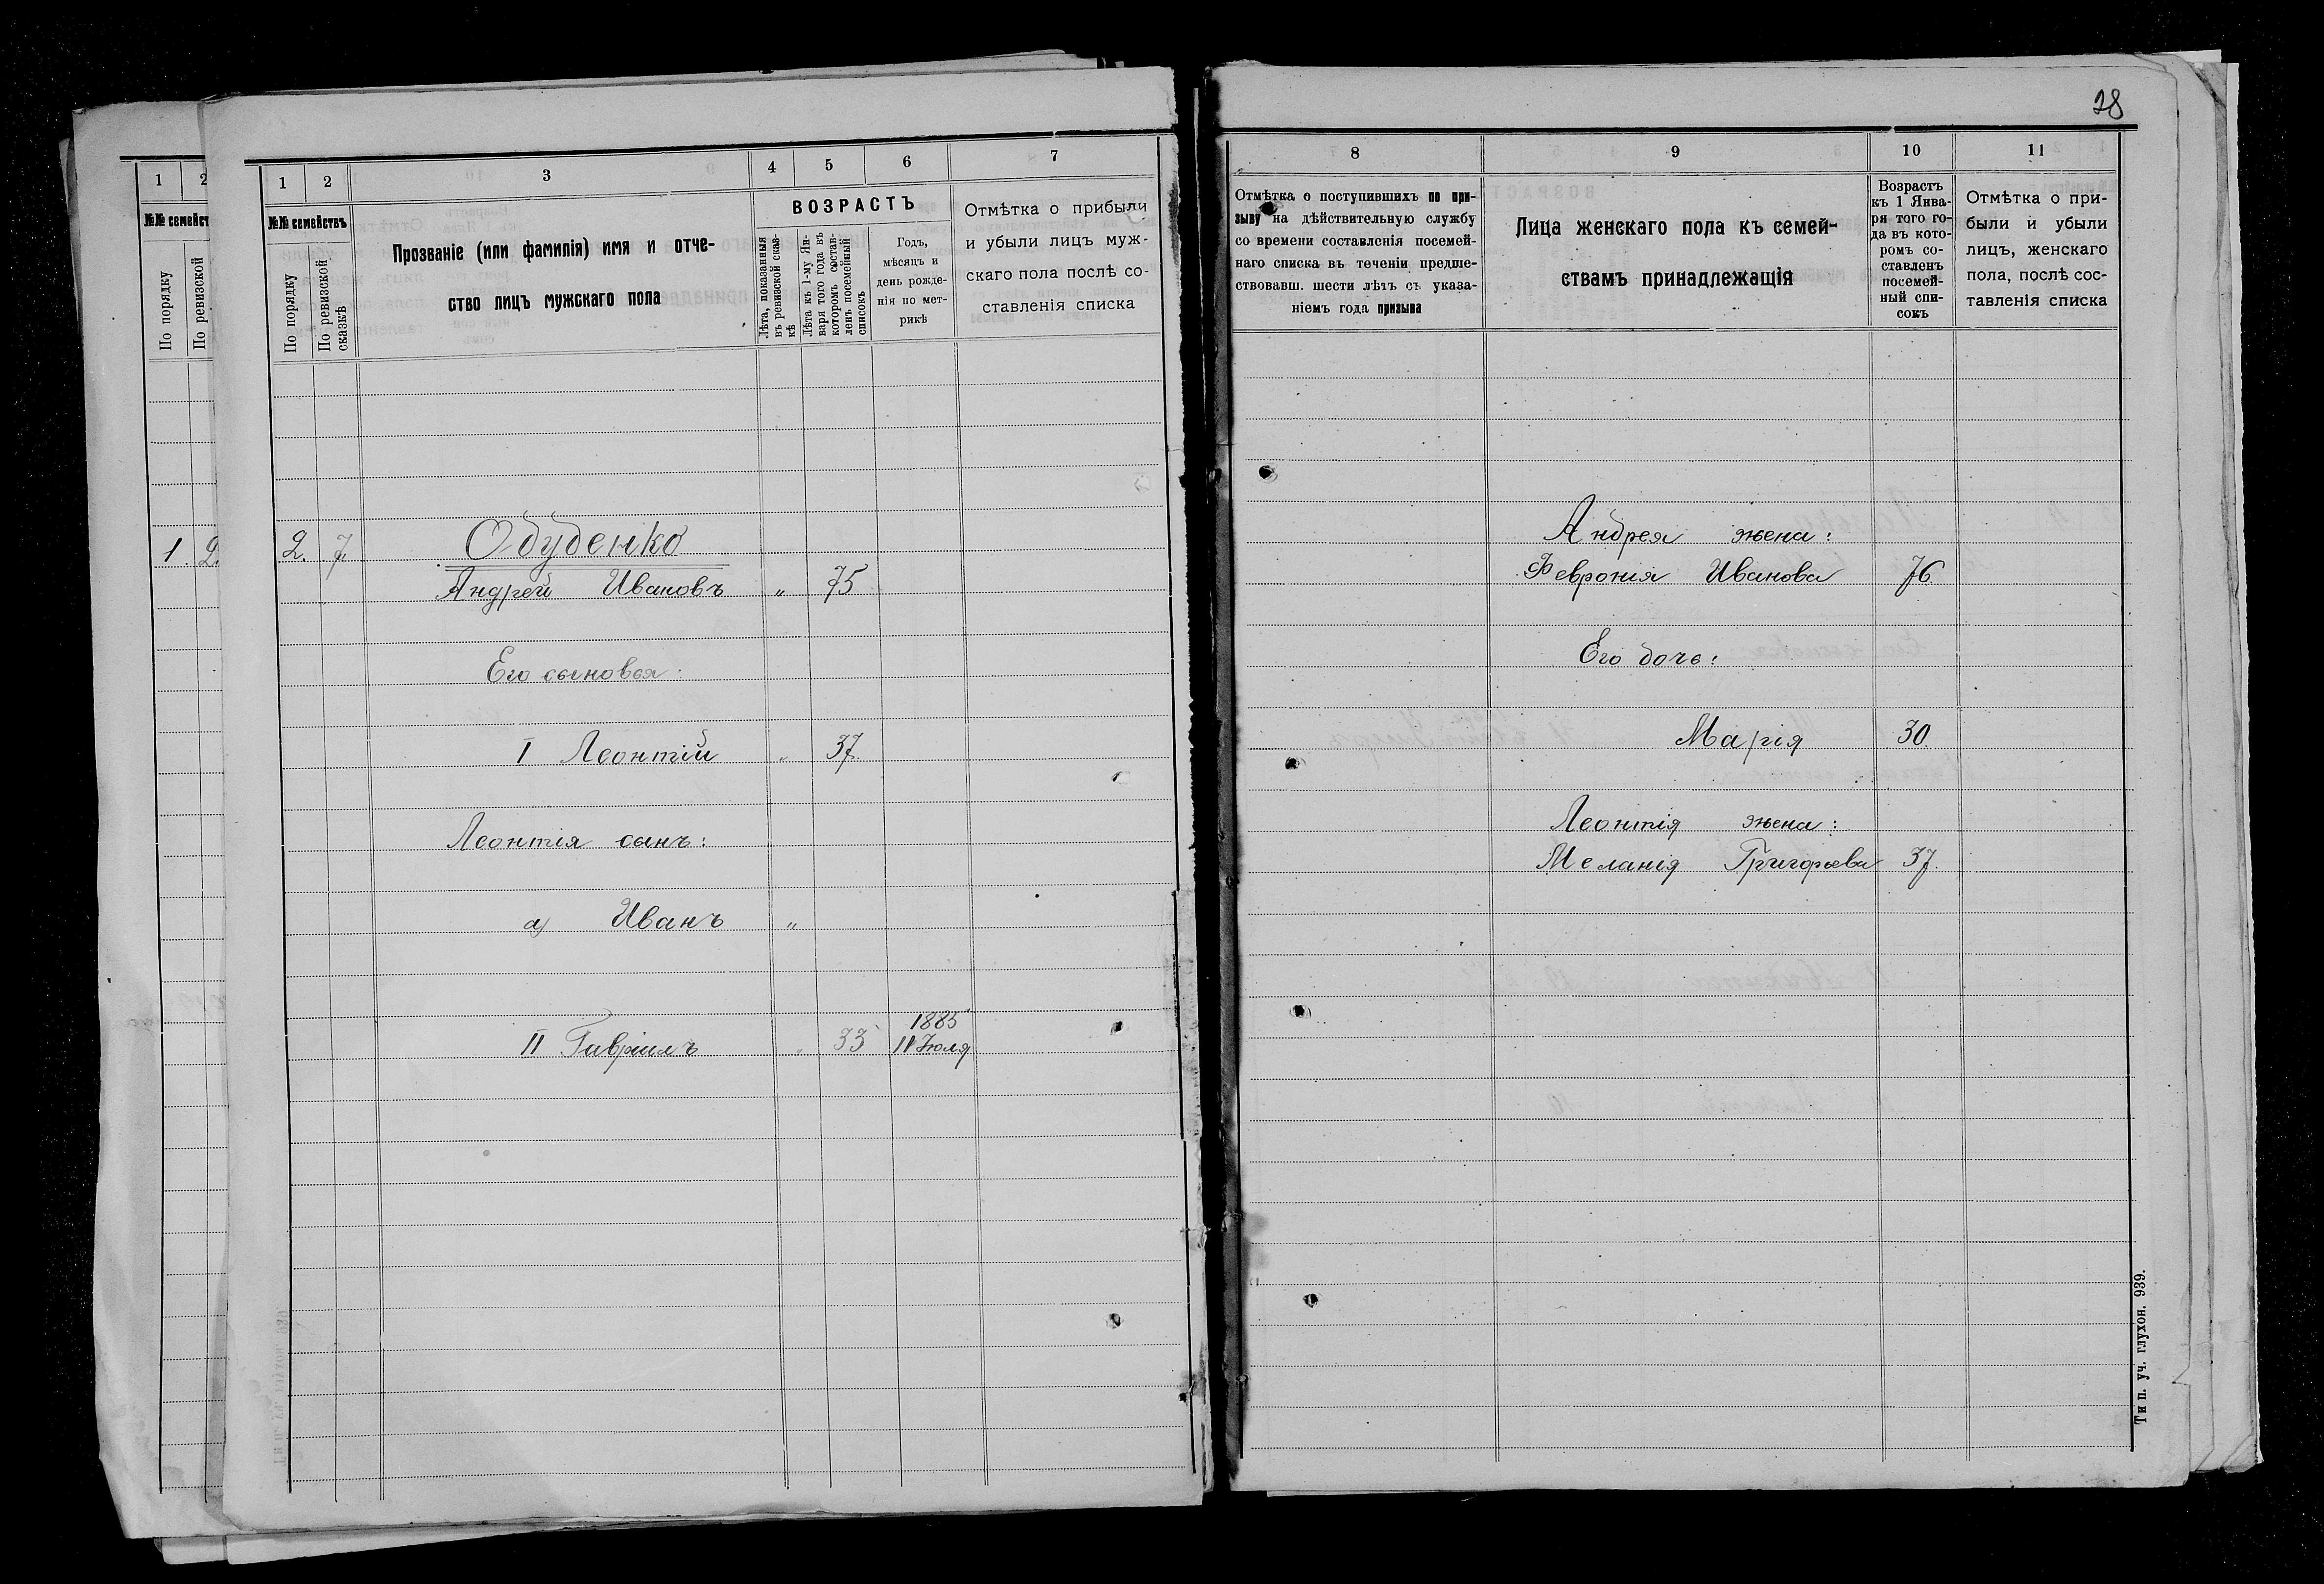 28
1
2
№№ семейст
По порядку
По ревизской
1.
2.
1
2
3
4
5
6
7
№№ семействъ
По порядку
По ревизской
сказкѣ
Прозваніе (или фамилія) имя и отче-
ство лицъ мужскаго пола
ВОЗРАСТЪ
Лѣта, показанныя
въ ревизской сказ-
кѣ
Лѣта къ 1-му Ян-
варя того года въ
которомъ состав-
ленъ посемейный
списокъ
Годъ,
мѣсяцъ и
день рожде-
нія по мет-
рикѣ
Отмѣтка о прибыли
и убыли лицъ муж-
скаго пола послѣ со-
ставленія списка
2. 7 Одуденко
Андрей Ивановъ " 75
Его сыновья:
I Леонтій " 37.
Леонтія сынъ:
а) Иванъ "
1885
II Гавріилъ " 33 11 Іюля
8
9
10
11
Отмѣтка о поступившихъ по при-
зыву на дѣйствительную службу
со времени составленія посемей-
наго списка въ теченіи предше-
ствовавш. шести лѣтъ съ указа-
ніемъ года призыва
Лица женскаго пола къ семей-
ствамъ принадлежащія
Возрастъ
къ 1 Янва-
ря того го-
да въ кото-
ромъ со-
ставленъ
посемей-
ный спи-
сокъ
Отмѣтка о при-
были и убыли
лицъ, женскаго
пола, послѣ сос-
тавленія списка
Андрея жена:
Февронія Иванова 76.
Его дочь:
Марія 30.
Леонтія жена:
Меланія Григорьева 37.
Тип. уч. глухон. 939.